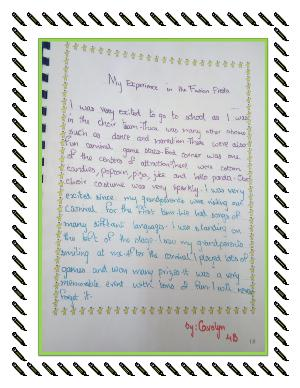 My Experience in the Fusion Fiesta
I was very excited to go to school as I was
in the choir team. There was many other shows
such as dance and narration. There were also
fun carnival game stalls. Food corner was one
of the centers of attraction. There were cotton
candies, popcorn, pizza, juice and hello panda. Our
choir costume was very sparkly. I was very
excited since my grandparents were visiting our
carnival for the first time. We had songs of
many different languages. I was standing on
the left of the stage. I saw my grandparents
smiling at me. After the carnival I played lots of
games and won many prizes. It was a very
memorable event with tons of fun. I will never
forget it.
by: Carolyn
4B